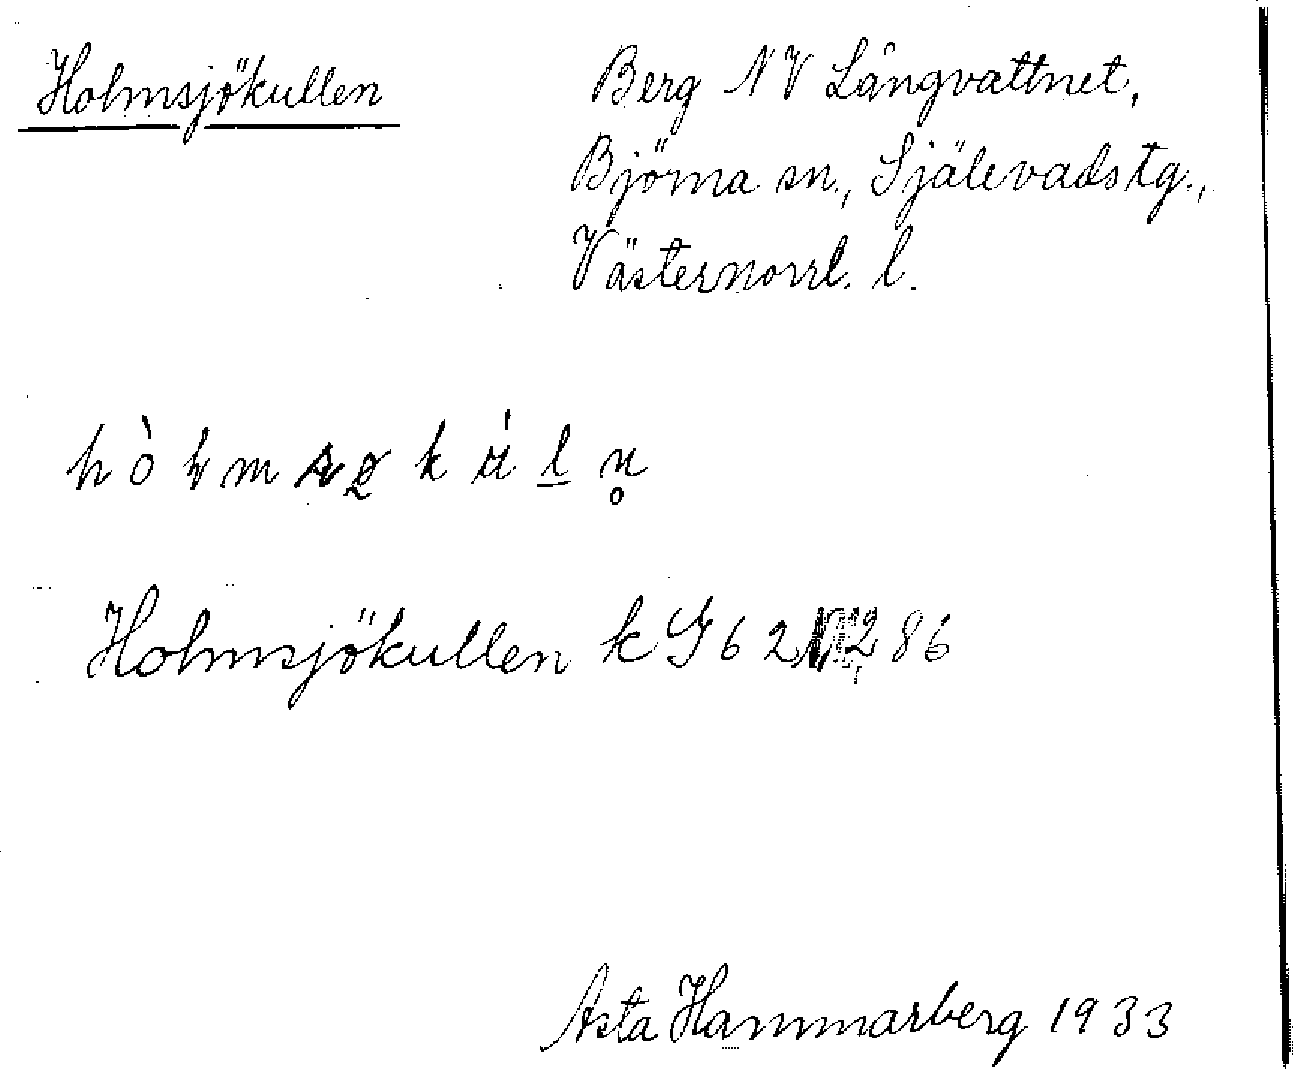 Holmsjökullen
Berg NV Långvattnet,
Björna sn., Själevads tg.,
Västernorrl. l.
Holmsjökullen k G 62 86
Asta Hammarberg 1933